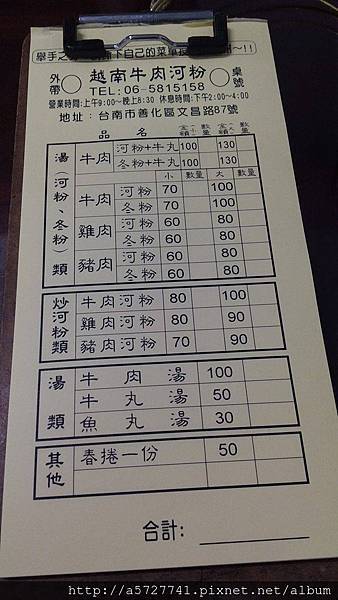 舉手之
下自己的菜單
~!!
外帶 越南牛肉河粉 桌號
TEL:06-5815158
營業時間:上午9:00~晚上8:30 休息時間:下午2:00~4:00
地址:台南市善化區文昌路87號
品名 金額(小) 數量 金額(大) 數量
湯(河粉、冬粉)類
牛肉 河粉+牛丸 100 130
冬粉+牛丸 100 130
小 數量 大 數量
牛肉 河粉 70 100
冬粉 70 100
雞肉 河粉 60 80
冬粉 60 80
豬肉 河粉 60 80
冬粉 60 80
炒河粉類
牛肉河粉 80 100
雞肉河粉 80 90
豬肉河粉 70 90
湯類
牛肉湯 100
牛丸湯 50
魚丸湯 30
其他
春捲一份 50
合計:
http://a5727741.pixnet.net/album